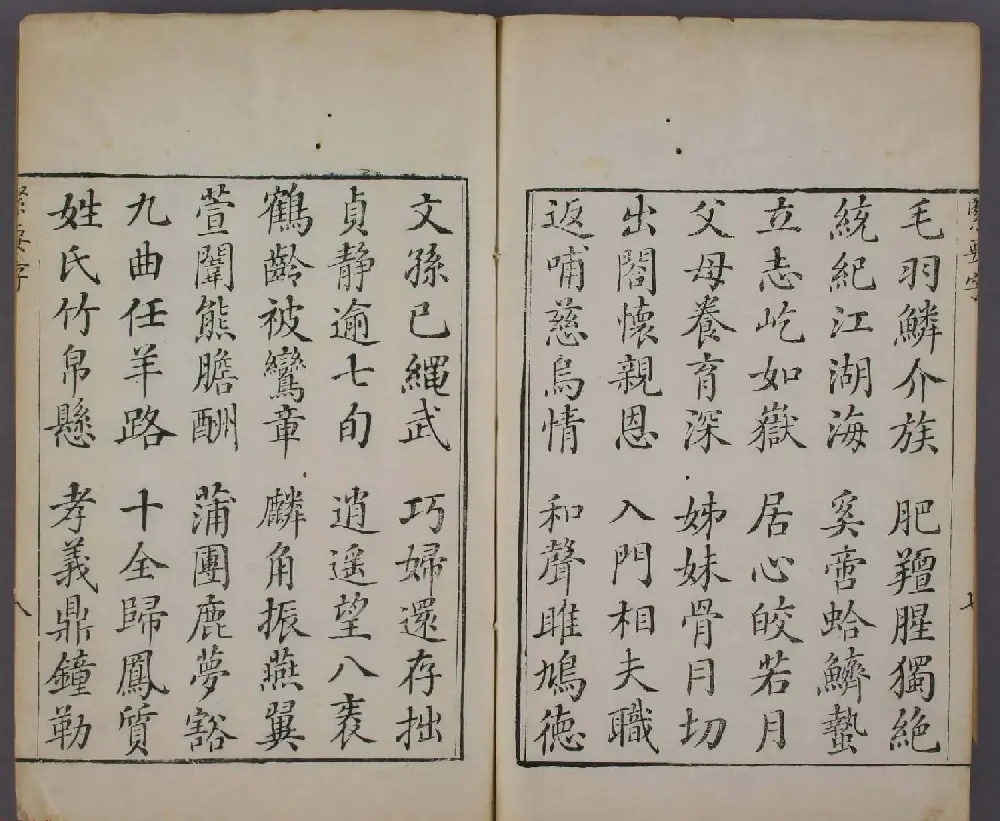 毛羽鱗介族 肥羶腥獨絶
統紀江湖海 奚啻蛤鱭蟄
立志屹如嶽 居心皎若月
父母養育深 姊妹骨月切
出閤懷親恩 入門相夫職
返哺慈烏情 和聲雎鳩德
七
文孫已繩武 巧婦還存拙
貞静逾七旬 逍遥望八袠
鶴齡被鸞章 麟角振燕翼
萱闈熊膽酬 蒲團鹿夢豁
九曲任羊路 十全歸鳳質
姓氏竹帛懸 孝義鼎鐘勒
八